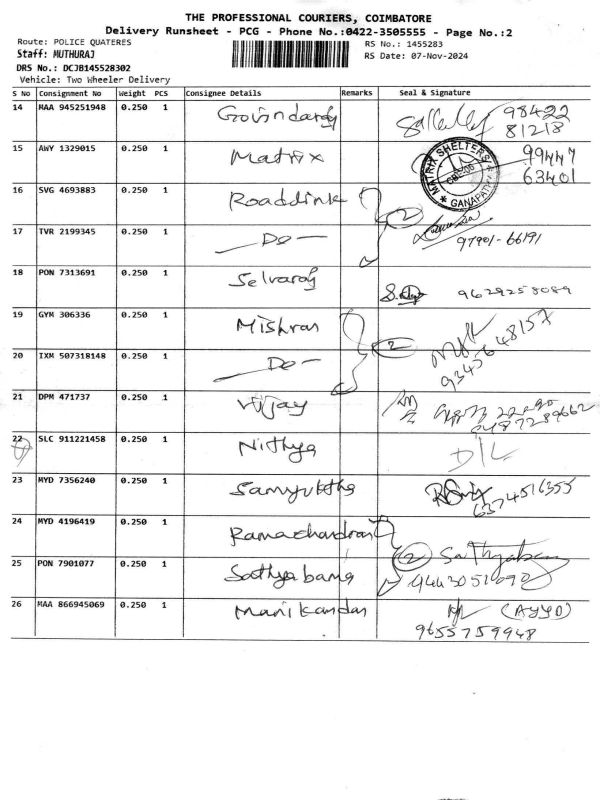 THE PROFESSIONAL COURIERS, COIMBATORE
Delivery Runsheet - PCG - Phone No.:0422-3505555 - Page No.:2
Route: POLICE QUATERES RS No.: 1455283
Staff: MUTHURAJ RS Date: 07-Nov-2024
DRS No.: DCJB145528302
Vehicle: Two Wheeler Delivery
S No Consignment No Weight PCS Consignee Details Remarks Seal & Signature
14 MAA 945251948 0.250 1 Govindaraj 98422
81218
15 AWY 1329015 0.250 1 Matrix 99447
63401
MATRIX SHELTERS
GANAPATHY
16 SVG 4693883 0.250 1 Roaddink 2
17 TVR 2199345 0.250 1 — Do — 97901-66191
18 PON 7313691 0.250 1 Selvaraj 9629258089
19 GYM 306336 0.250 1 Mishran 2
9345648157
20 IXM 507318148 0.250 1 — Do —
21 DPM 471737 0.250 1 Vijay
22 SLC 911221458 0.250 1 Nithya D/L
23 MYD 7356240 0.250 1 Samyuktha 6374516355
24 MYD 4196419 0.250 1 Ramachandran 2 Sathyabama
25 PON 7901077 0.250 1 Sathyabama 9443051090
26 MAA 866945069 0.250 1 Manikandan (AYYO)
9655759948